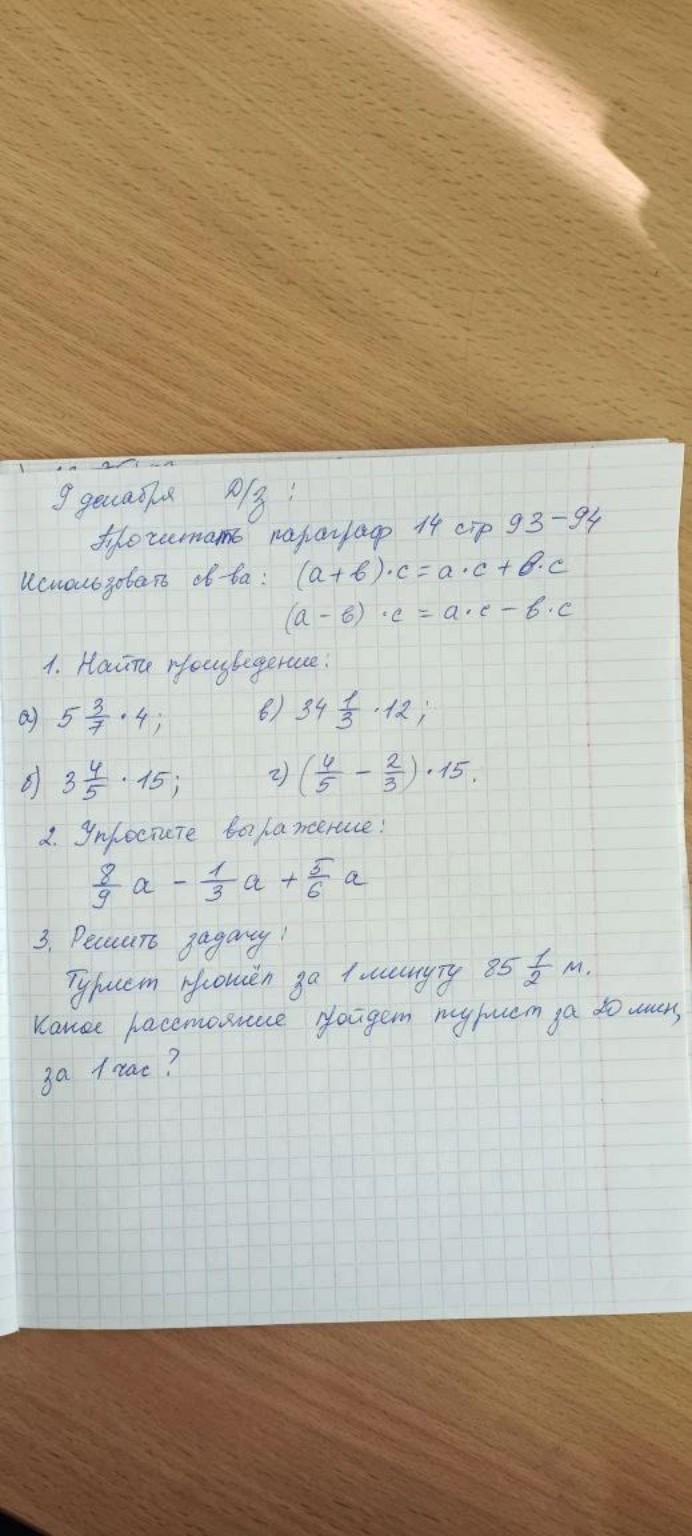 9 декабря Д/з:
Прочитать параграф 14 стр 93-94
Использовать св-ва: (а+в)·с=а·с+в·с
(а-в)·с=а·с-в·с
1. Найти произведение:
а) 5 3/7 · 4; в) 34 1/3 · 12;
б) 3 4/5 · 15; г) (4/5 - 2/3) · 15.
2. Упростите выражение:
8/9 а - 1/3 а + 5/6 а
3. Решить задачу:
Турист прошёл за 1 минуту 85 1/2 м.
Какое расстояние пройдет турист за 20 мин,
за 1 час?